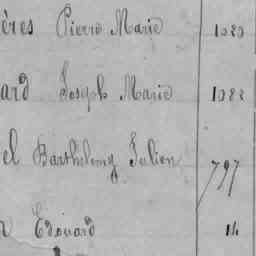 ères Pierre Marie 1080
ard Joseph Marie 1082
el Barthelemy Julien 797
Edouard 14